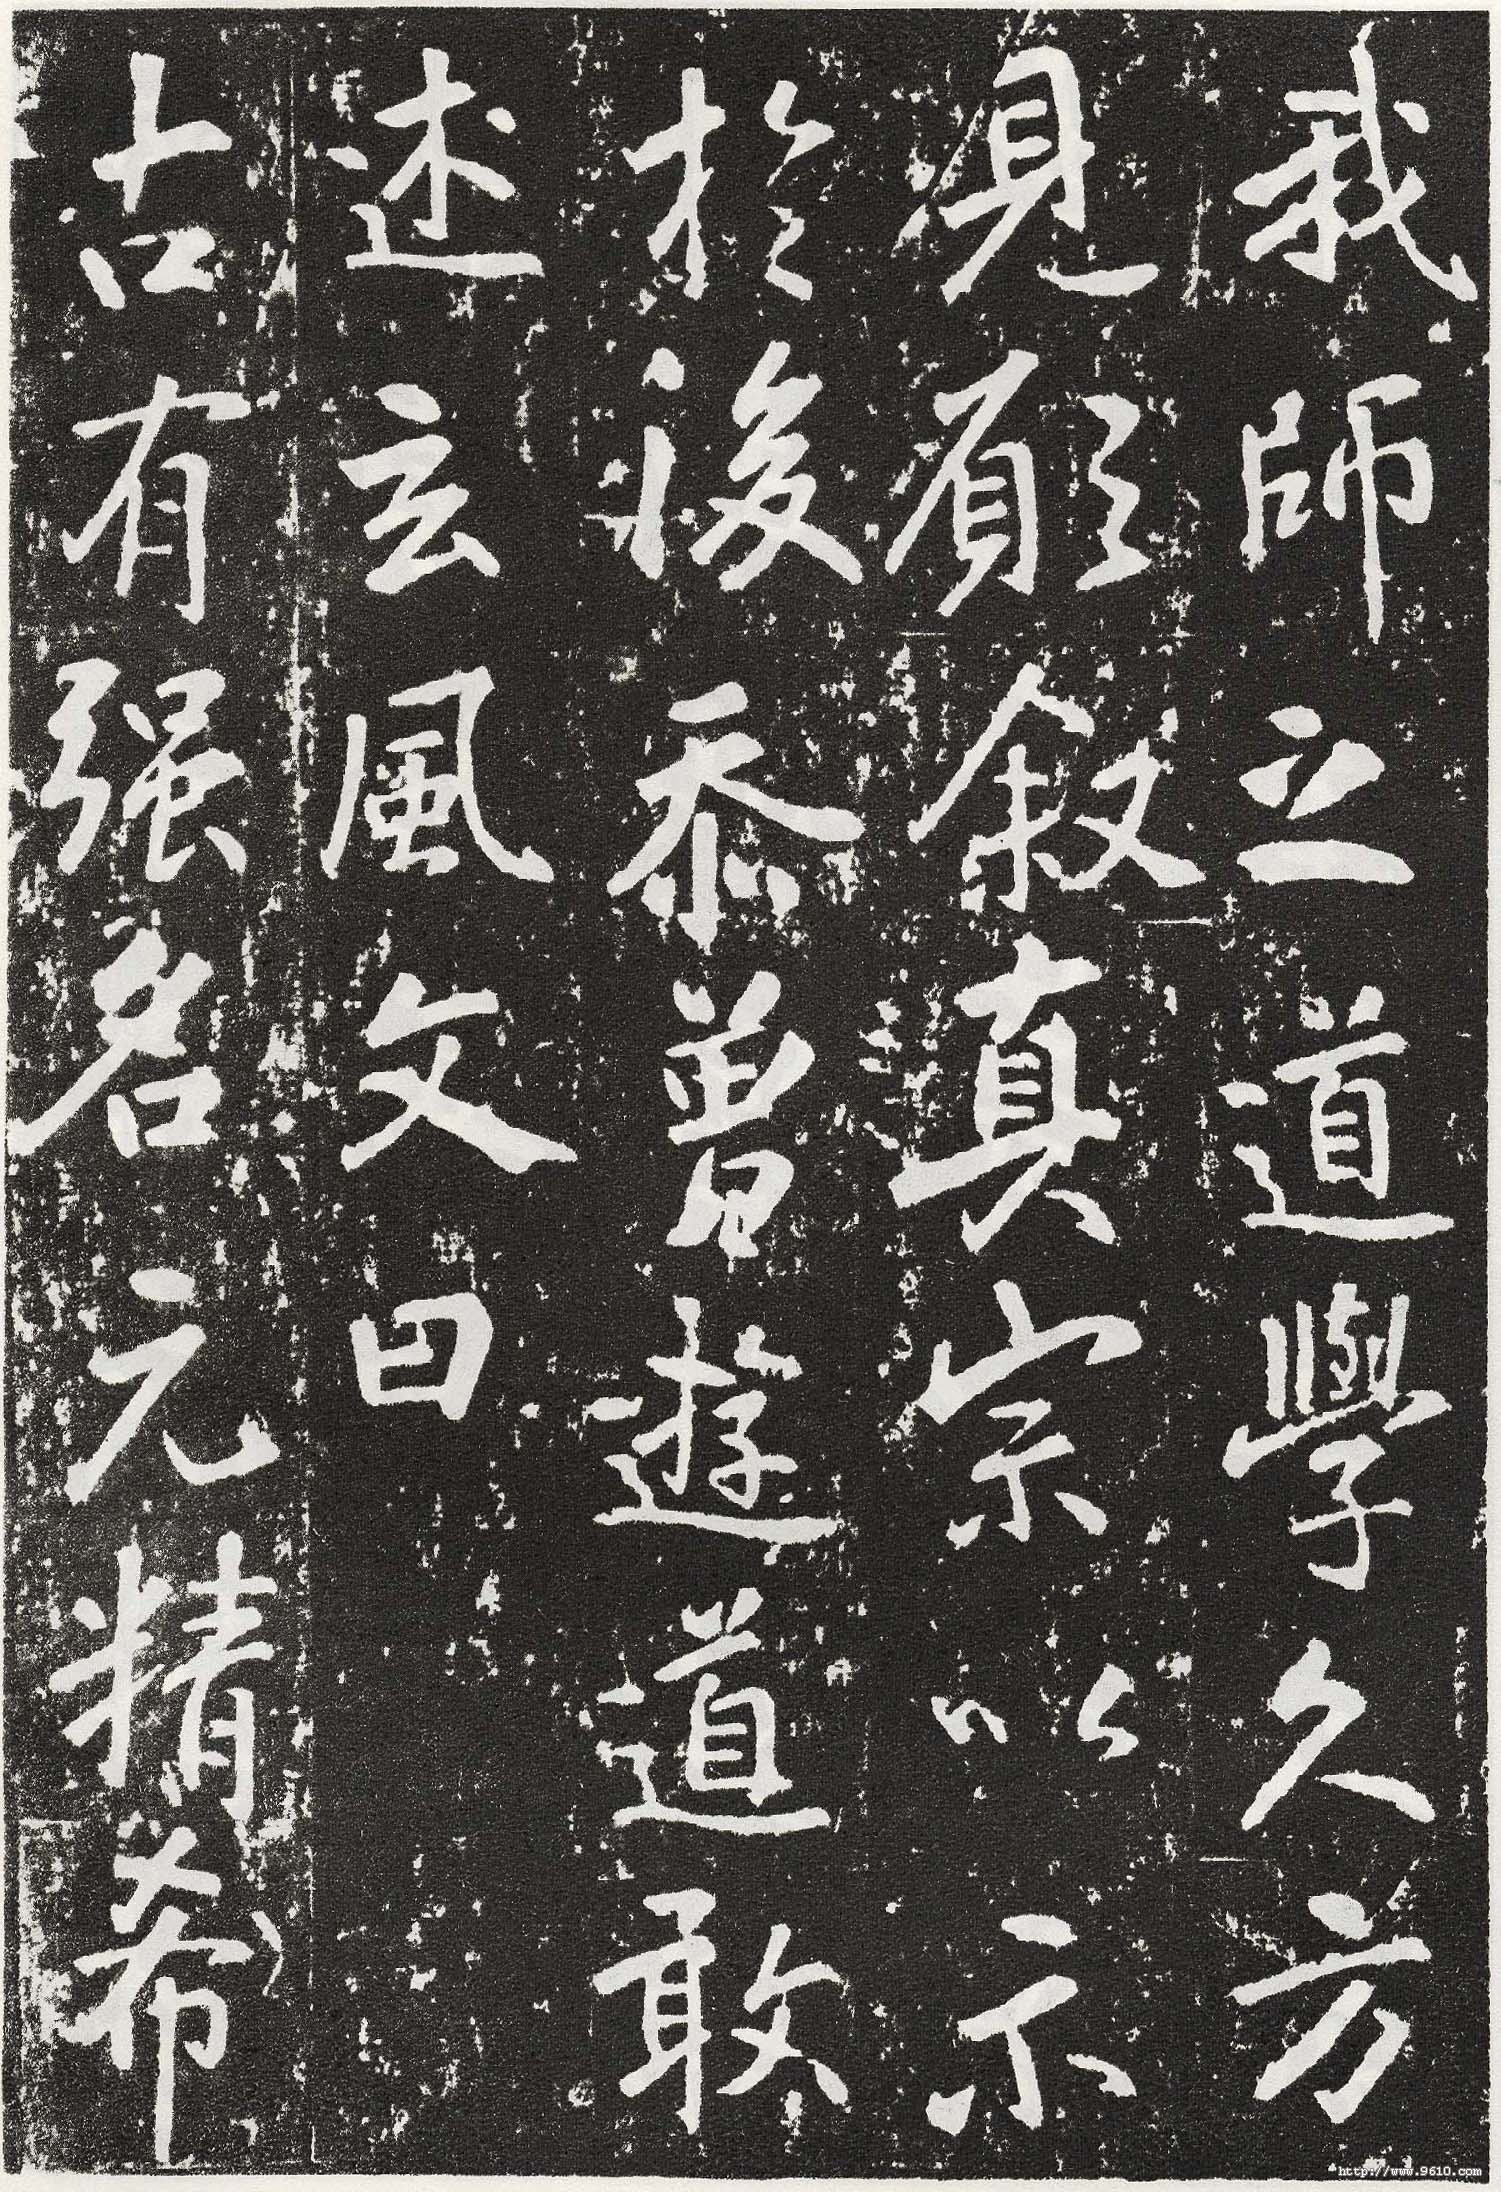 我師立道學久方
見願敘真宗以示
於後忝曾遊道敢
述玄風文曰
古有强名元精希
http://www.9610.com